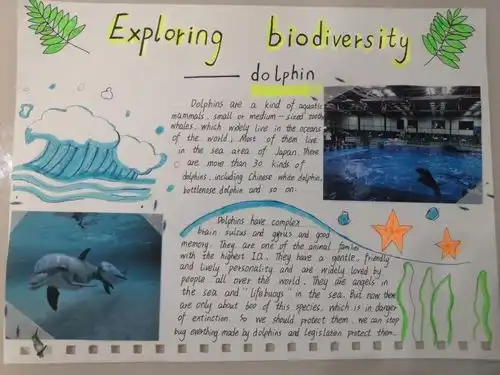 Exploring biodiversity
—— dolphin
Dolphins are a kind of aquatic
mammals, small or medium-sized tooth
whales, which widely live in the oceans
of the world. Most of them live
in the sea area of Japan. There
are more than 30 kinds of
dolphins, including Chinese white dolphin,
bottlenose dolphin and so on.
Dolphins have complex
brain sulcus and gyrus and good
memory. They are one of the animal families
with the highest I.Q. They have a gentle, friendly
and lively personality and are widely loved by
people all over the world. They are angels in
the sea and "lifebuoys" in the sea. But now there
are only about 600 of this species, which is in danger
of extinction. So we should protect them, we can stop
bug everthing made by dolphins and legislation protect them.